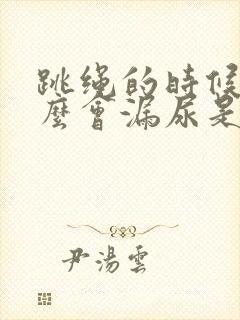 跳绳的時候
麼會漏尿是
尹湯雲